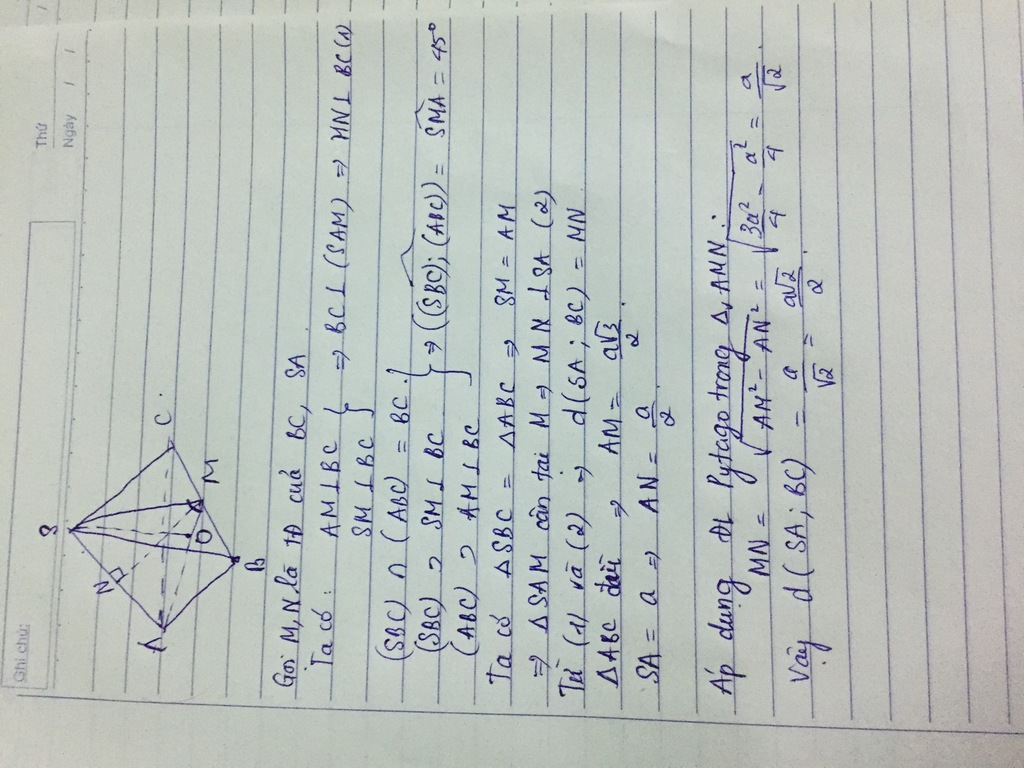 Ghi chú:
Thứ
Ngày / /
S
N
A
C
O
M
B
Gọi M, N là TĐ của BC, SA
Ta có: AM ⊥ BC } => BC ⊥ (SAM) => MN ⊥ BC (1)
SM ⊥ BC
(SBC) ∩ (ABC) = BC.
(SBC) ⊃ SM ⊥ BC } => ((SBC); (ABC)) = SMA = 45°
(ABC) ⊃ AM ⊥ BC
Ta có ΔSBC = ΔABC => SM = AM
=> ΔSAM cân tại M => MN ⊥ SA (2)
Từ (1) và (2) => d(SA; BC) = MN
ΔABC đều => AM = a√3/2.
SA = a => AN = a/2
Áp dụng ĐL Pytago trong Δv AMN:
MN = √(AM² - AN²) = √(3a²/4 - a²/4) = a/√2.
Vậy d(SA; BC) = a/√2 = a√2/2